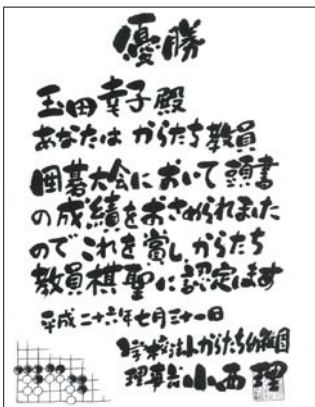 優勝
玉田幸子殿
あなたは からたち教員
囲碁大会において頭書
の成績をおさめられました
のでこれを賞し、からたち
教員棋聖に認定します
平成二十六年七月三十一日
学校法人からたち幼稚園
理事長 小西 理